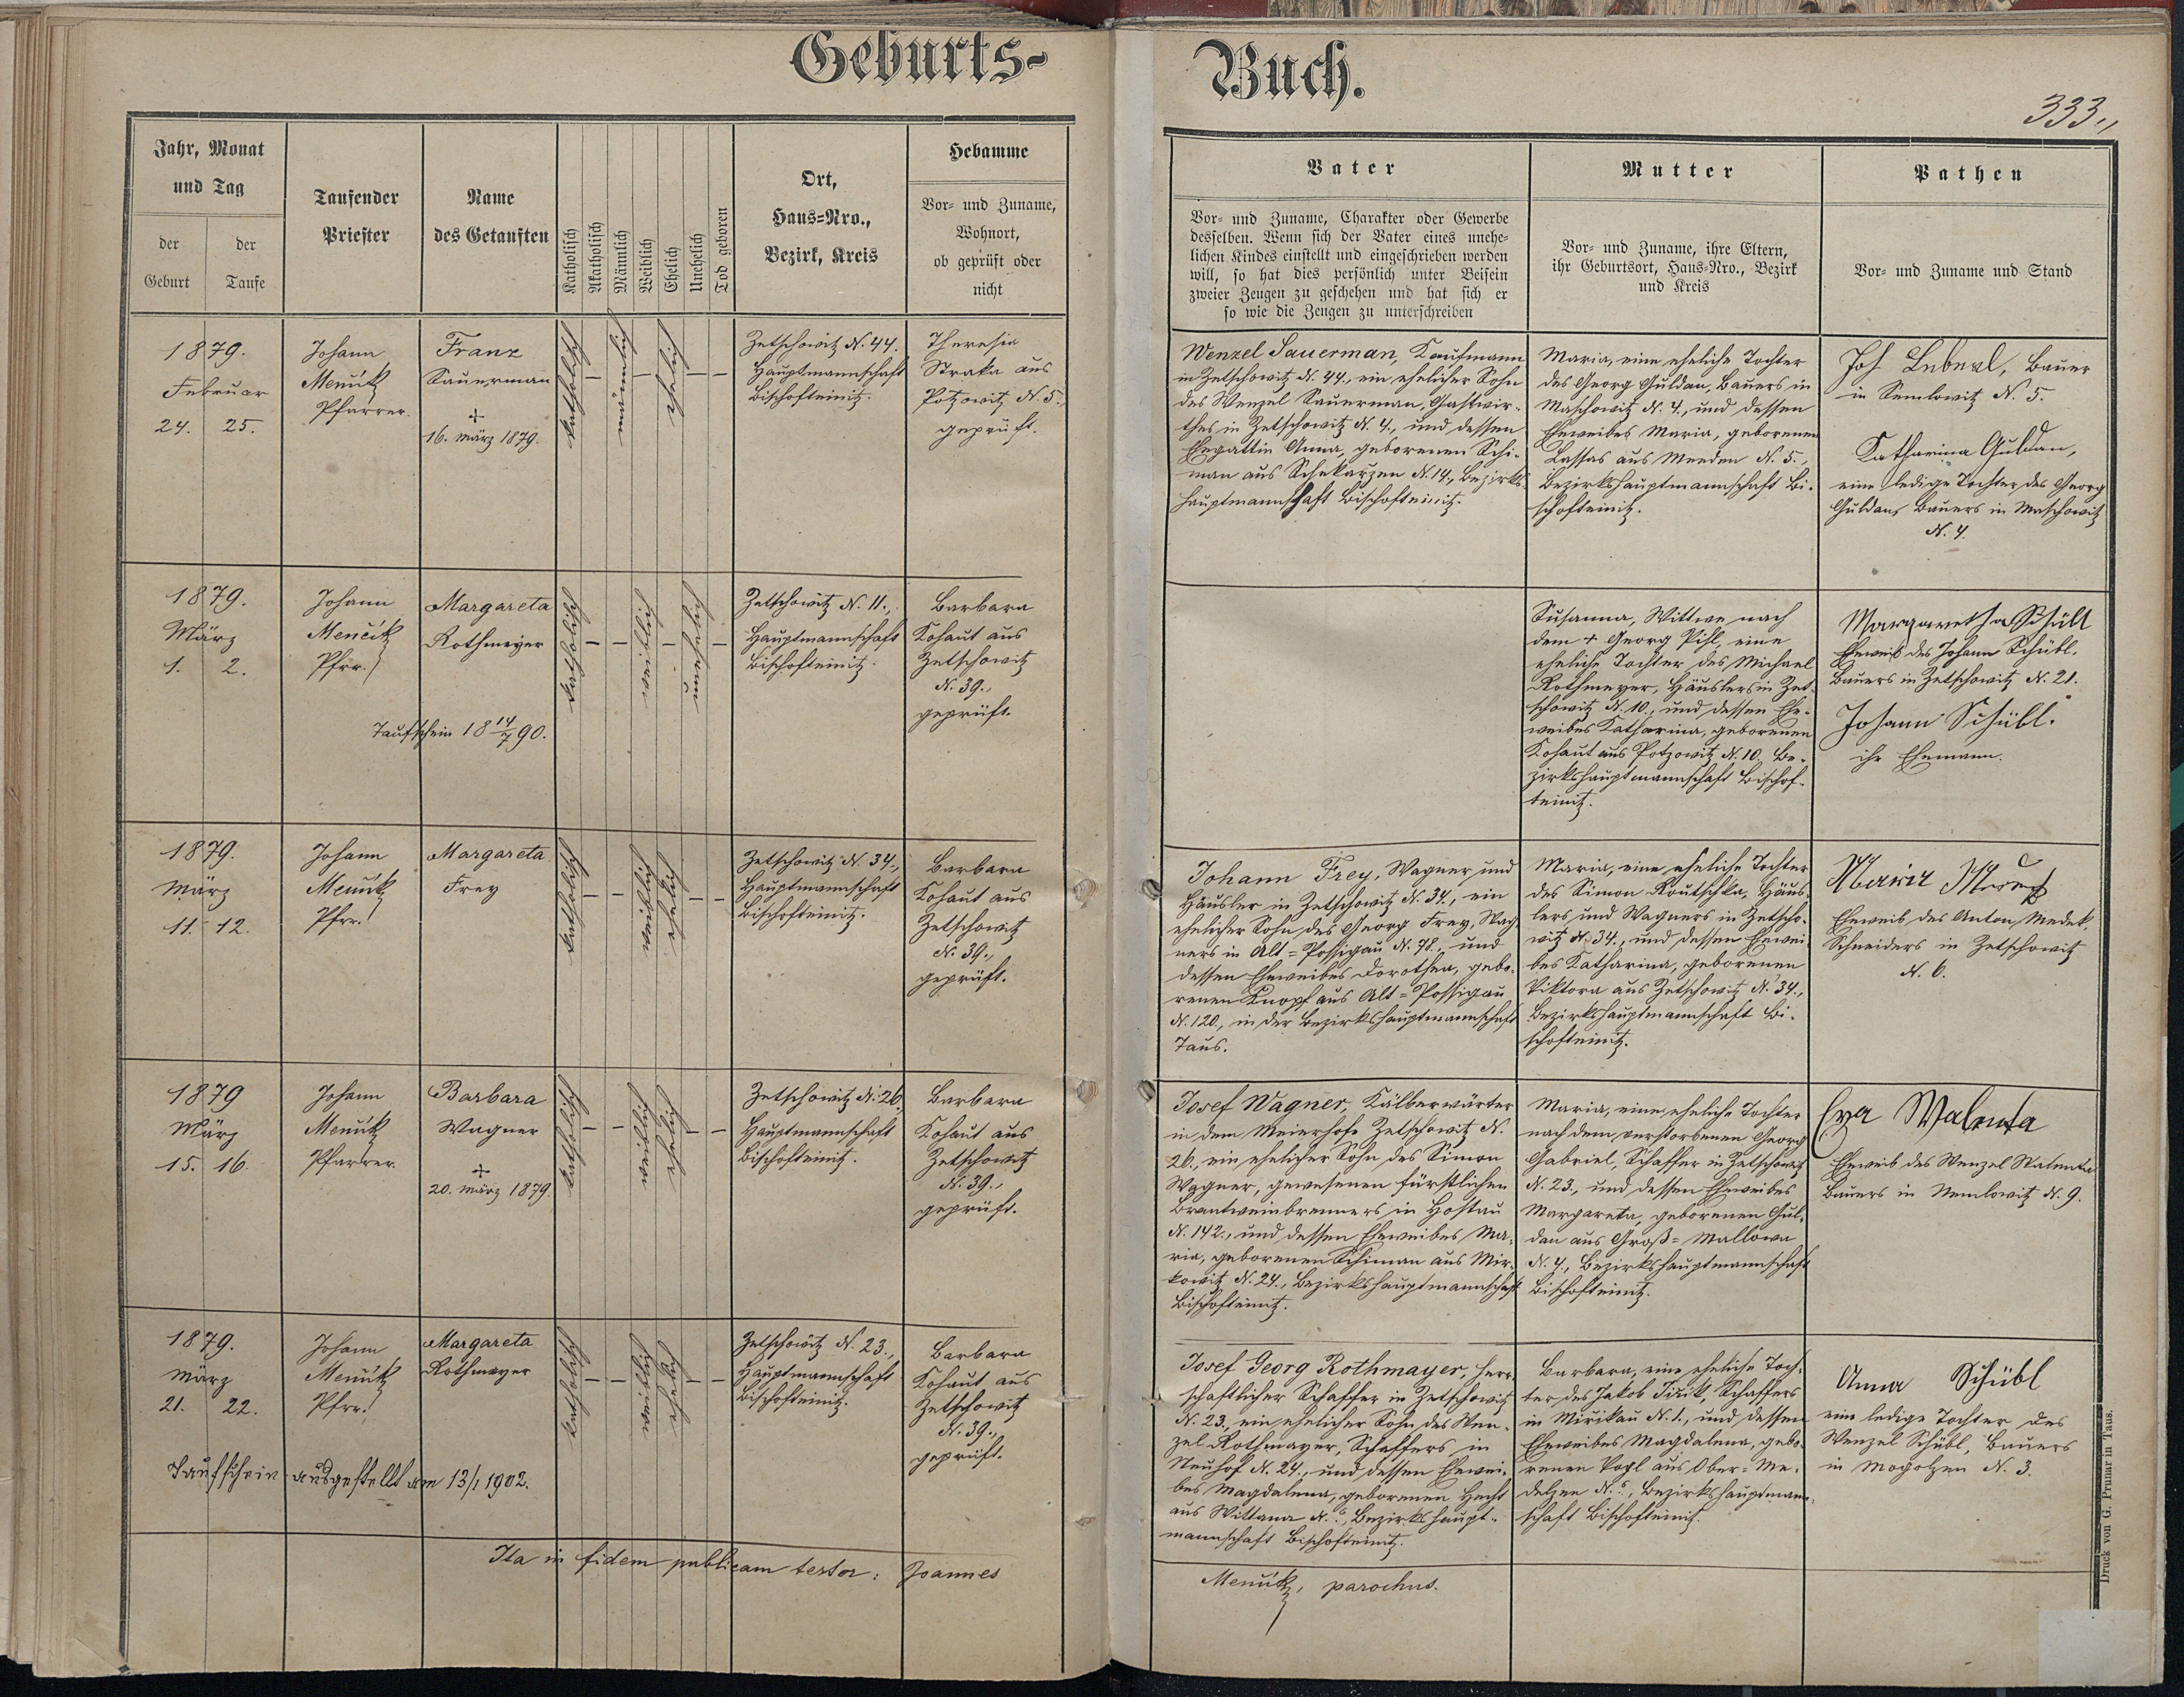 Geburts-
Buch.
333.,
Jahr, Monat
und Tag
der
Geburt
der
Taufe
Taufender
Priester
Name
des Getauften
Katholisch
Akatholisch
Männlich
Weiblich
Ehelich
Unehelich
Tod geboren
Ort,
Haus=Nro.,
Bezirk, Kreis
Hebamme
Vor= und Zuname,
Wohnort,
ob geprüft oder
nicht
Vater
Vor= und Zuname, Charakter oder Gewerbe
desselben. Wenn sich der Vater eines unehe=
lichen Kindes einstellt und eingeschrieben werden
will, so hat dies persönlich unter Beisein
zweier Zeugen zu geschehen und hat sich er
so wie die Zeugen zu unterschreiben
Mutter
Vor= und Zuname, ihre Eltern,
ihr Geburtsort, Haus=Nro., Bezirk
und Kreis
Pathen
Vor= und Zuname und Stand
1879.
Februar
24. 25.
Johann
Menčík
Pfarrer.
Franz
Sauerman
+
16. März 1879.
katholisch
männlich
ehelich
Zetschowitz N. 44.
Hauptmannschaft
Bischofteinitz.
Theresia
Straka aus
Potzowitz N. 5.,
geprüft.
Wenzel Sauerman, Kaufmann
in Zetschowitz N. 44., ein ehelicher Sohn
des Wenzel Sauerman, Gastwir-
thes in Zetschowitz N. 4., und dessen
Ehegattin Anna, geborenen Schi-
man aus Schekarzen N. 14., Bezirks-
hauptmannschaft Bischofteinitz.
Maria, eine eheliche Tochter
des Georg Guldan, Bauers in
Maschowitz N. 4., und dessen
Eheweibes Maria, geborenen
Lassas aus Meeden N. 5.,
Bezirkshauptmannschaft Bi-
schofteinitz.
Joh Leberl, Bauer
in Semlowitz N. 5.
Katharina Guldan,
eine ledige Tochter des Georg
Guldan, Bauers in Maschowitz
N. 4.
1879.
März
1. 2.
Johann
Menčík
Pfrr.
Margareta
Rothmeyer
Taufschein 18 14/7 90.
katholisch
weiblich
unehelich
Zetschowitz N. 11.,
Hauptmannschaft
Bischofteinitz.
Barbara
Kohaut aus
Zetschowitz
N. 39.,
geprüft.
Susanna, Wittwe nach
dem + Georg Pihl, eine
eheliche Tochter des Michael
Rothmeyer, Häuslers in Zet-
schowitz N. 10., und dessen Ehe-
weibes Katharina, geborenen
Kohaut aus Potzowitz N. 10. Be-
zirkshauptmannschaft Bischof-
teinitz.
Margaretha Schübl
Eheweib des Johann Schübl.
Bauers in Zetschowitz N. 21.
Johann Schübl.
ihr Ehemann.
1879.
März
11. 12.
Johann
Menčík
Pfrr.
Margareta
Frey
katholisch
weiblich
ehelich
Zetschowitz N. 34.,
Hauptmannschaft
Bischofteinitz.
Barbara
Kohaut aus
Zetschowitz
N. 39.,
geprüft.
Johann Frey, Wagner und
Häusler in Zetschowitz N. 34., ein
ehelicher Sohn des Georg Frey, Wag-
ners in Alt=Possigau N. 78., und
dessen Eheweibes Dorothea, gebo-
renen Knopf aus Alt=Possigau
N. 120., in der Bezirkshauptmannschaft
Taus.
Maria, eine eheliche Tochter
des Simon Routschka, Häus-
lers und Wagners in Zetscho-
witz N. 34., und dessen Ehewei-
bes Katharina, geborenen
Viktora aus Zetschowitz N. 34.,
Bezirkshauptmannschaft Bi-
schofteinitz.
Maria
Eheweib des Anton Medek,
Schneiders in Zetschowitz
N. 6.
1879
März
15. 16.
Johann
Menčík
Pfarrer.
Barbara
Wagner
+
20. März 1879.
katholisch
weiblich
ehelich
Zetschowitz N. 26.,
Hauptmannschaft
Bischofteinitz.
Barbara
Kohaut aus
Zetschowitz
N. 39.,
geprüft.
Josef Wagner, Kälberwärter
in dem Meierhofe Zetschowitz N.
26., ein ehelicher Sohn des Simon
Wagner, gewesenen fürstlichen
Brantweinbrenners in Hostau
N. 142., und dessen Eheweibes Ma-
ria, geborenen Schiman aus Mir-
kowitz N. 24., Bezirkshauptmannschaft
Bischofteinitz.
Maria, eine eheliche Tochter
nach dem verstorbenen Georg
Gabriel, Schaffer in Zetschowitz
N. 23., und dessen Eheweibes
Margareta, geborenen Gul-
dan aus Groß=Mallowa
N. 4., Bezirkshauptmannschaft
Bischofteinitz.
Eva Walenta
Eheweib des Wenzel Walenta
Bauers in Semlowitz N. 9.
1879.
März
21. 22.
Johann
Menčík
Pfrr.
Margareta
Rothmayer
Taufschein ausgestellt am 13/1 1902.
katholisch
weiblich
ehelich
Zetschowitz N. 23.,
Hauptmannschaft
Bischofteinitz.
Barbara
Kohaut aus
Zetschowitz
N. 39.,
geprüft.
Josef Georg Rothmayer, herr-
schaftlicher Schaffer in Zetschowitz
N. 23., ein ehelicher Sohn des Wen-
zel Rothmayer, Schaffers in
Neuhof N. 24., und dessen Ehewei-
bes Magdalena, geborenen Hecht
aus Wittana N. ?., Bezirkshaupt-
mannschaft Bischofteinitz.
Barbara, eine eheliche Toch-
ter des Jakob Schaffers
in Mirikau N. 1., und dessen
Eheweibes Magdalena, gebo-
renen Vogl aus Ober=Me-
delzen N. ?., Bezirkshauptmann-
schaft Bischofteinitz.
Anna Schübl
eine ledige Tochter des
Wenzel Schübl, Bauers
in Mogolzen N. 3.
Ita in fidem publicam testor: Joannes
Menčík, parochus.
Druck von G. Prunar in Taus.